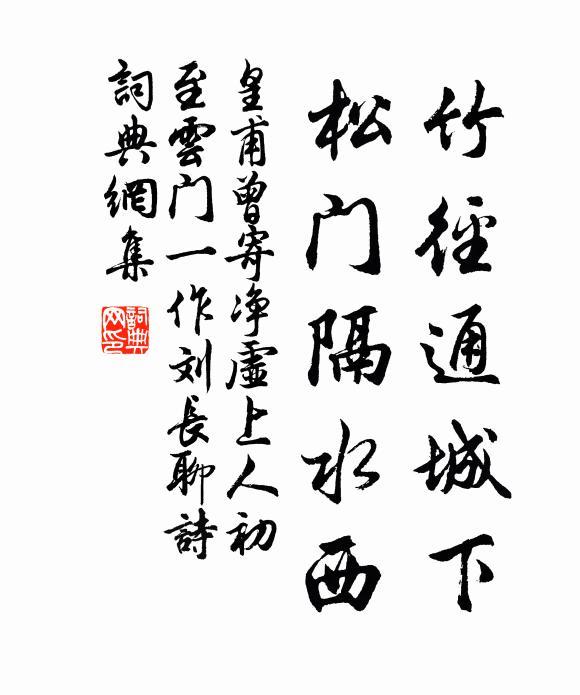 竹徑通城下
松门隔水西
皇甫曾寄净虛上人初
至雲门一作刘長聊詩
詞典網集
詞典网印